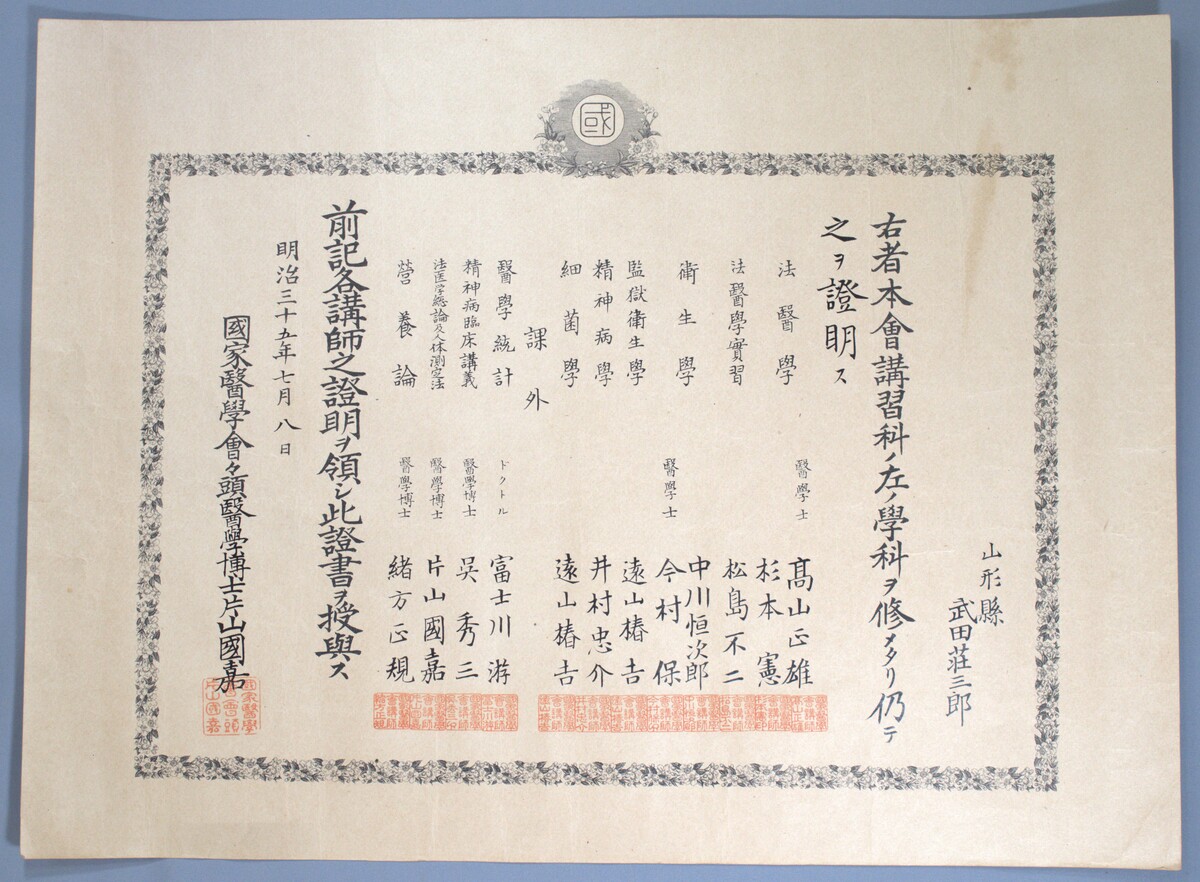 國
山形縣
武田荘三郎
右者本會講習科ノ左ノ學科ヲ修メタリ仍テ
之ヲ證明ス
法醫學 醫學士 髙山正雄
杉本憲
法醫學實習 松島不二
衛生學 中川恒次郎
醫學士 今村保
監獄衛生學 遠山椿吉
精神病學 井村忠介
細菌學 遠山椿吉
課外
醫學統計 ドクトル 富士川游
精神病臨床講義 醫學博士 吳秀三
法医学總論及人体測定法 醫學博士 片山國嘉
營養論 醫學博士 緒方正規
前記各講師之證明ヲ領シ此證書ヲ授與ス
明治三十五年七月八日
國家醫學會々頭醫學博士片山國嘉
國家醫學會會頭片山國嘉